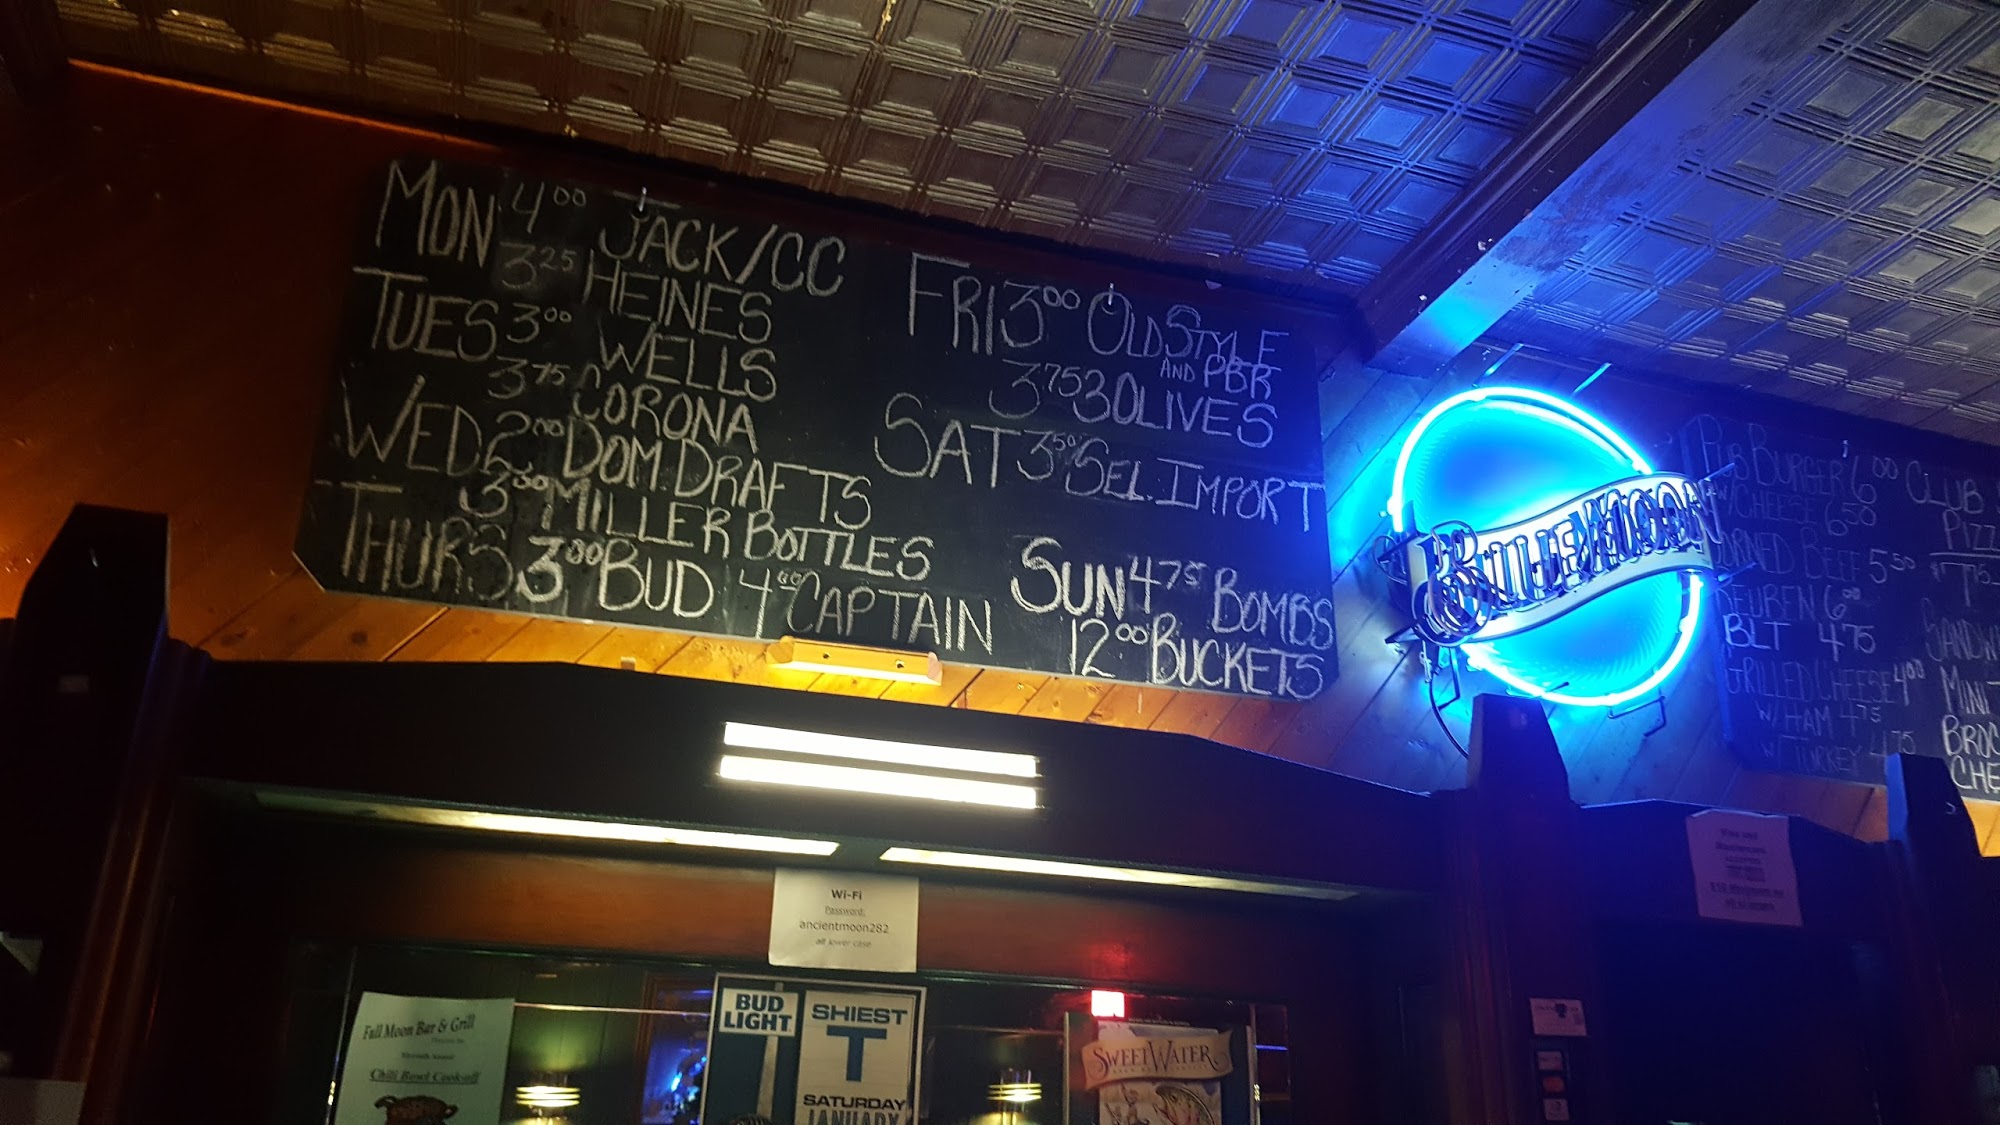 MON 4.00 JACK/CC
3.25 HEINES
TUES 3.00 WELLS
3.75 CORONA
WED 2.00 DOM. DRAFTS
3.00 MILLER BOTTLES
THURS 3.00 BUD 4.00 CAPTAIN
FRI 3.00 OLD STYLE
AND PBR
3.75 3 OLIVES
SAT 3.50 SEL. IMPORT
SUN 4.75 BOMBS
12.00 BUCKETS
BLUE MOON
PUB BURGER 6.00
W/ CHEESE 6.50
CORNED BEEF 5.50
REUBEN 6.00
BLT 4.75
GRILLED CHEESE 4.00
W/ HAM 4.75
W/ TURKEY 4.75
CLUB
PIZZ
SANDW
MINI
BROC
CHE
Wi-Fi
Password:
ancientmoon282
all lower case
Full Moon Bar & Grill
Chili Bowl Cookoff
BUD
LIGHT
SHIEST
T
SATURDAY
JANUARY
SWEETWATER